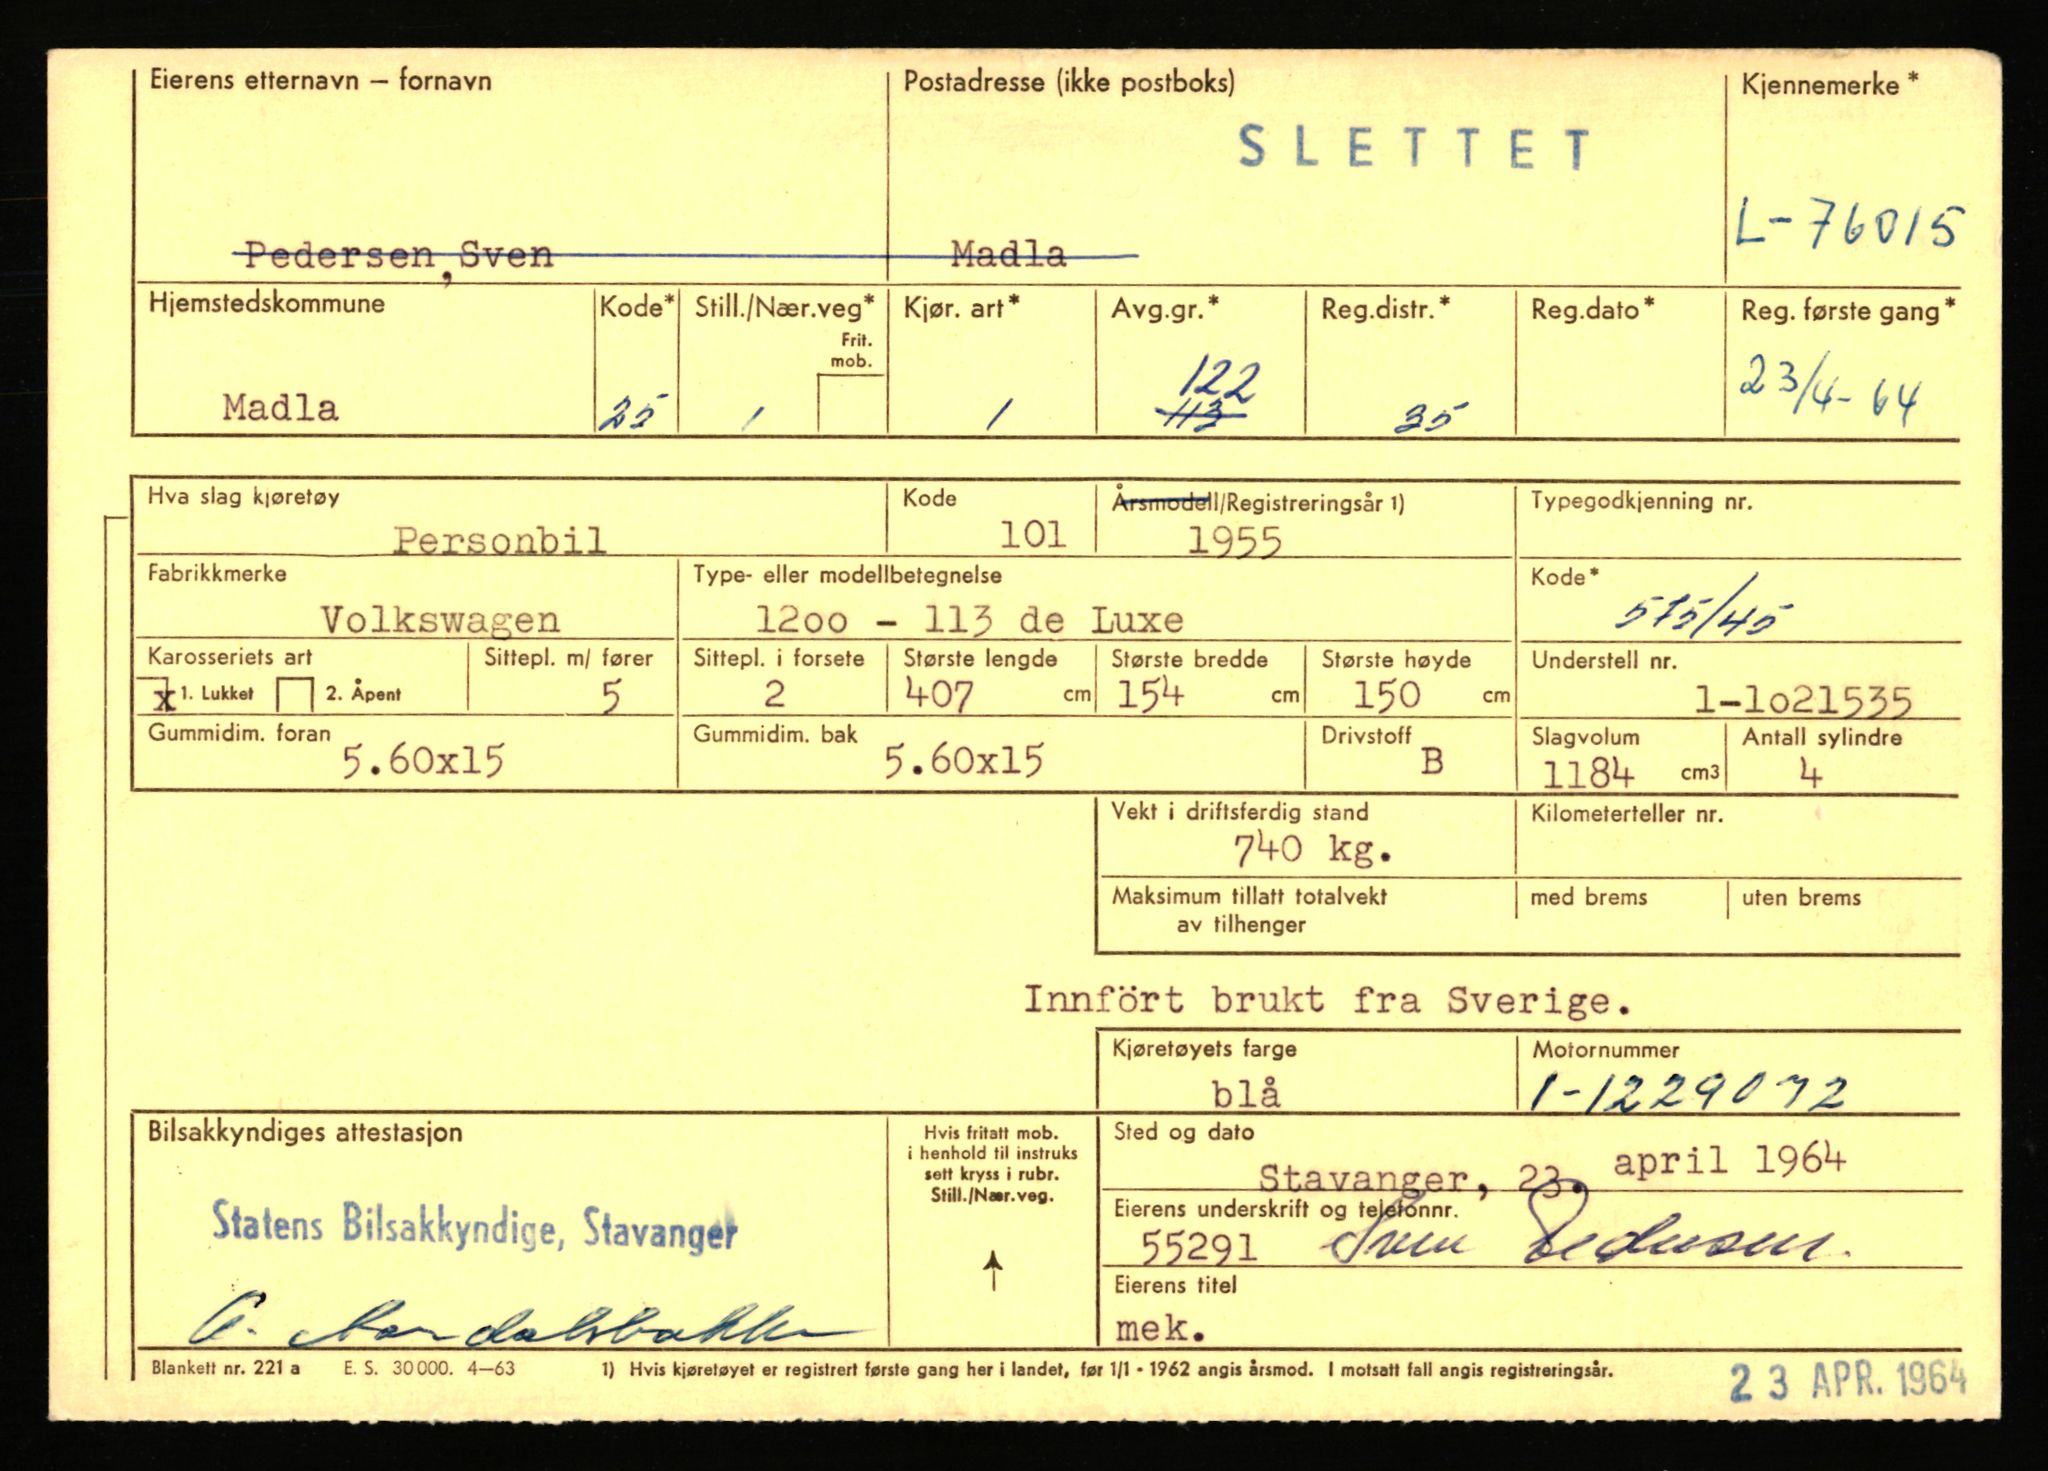 Eierens etternavn – fornavn Postadresse (ikke postboks) Kjennemerke*
SLETTET
L-76015
Pedersen, Sven Madla
Hjemstedskommune Kode* Still./Nær.veg* Kjør. art* Avg.gr.* Reg.distr.* Reg.dato* Reg. første gang*
Frit.
mob.
122
23/4-64
Madla 25 1 1 113 35
Hva slag kjøretøy Kode Årsmodell/Registreringsår 1) Typegodkjenning nr.
Personbil 101 1955
Fabrikkmerke Type- eller modellbetegnelse Kode*
Volkswagen 12oo - 113 de Luxe 575/45
Karosseriets art Sittepl. m/ fører Sittepl. i forsete Største lengde Største bredde Største høyde Understell nr.
x 1. Lukket 2. Åpent 5 2 407 cm 154 cm 150 cm 1-1o21535
Gummidim. foran Gummidim. bak Drivstoff Slagvolum Antall sylindre
5.60x15 5.60x15 B 1184 cm3 4
Vekt i driftsferdig stand Kilometerteller nr.
740 kg.
Maksimum tillatt totalvekt med brems uten brems
av tilhenger
Innfört brukt fra Sverige.
Kjøretøyets farge Motornummer
blå 1-1229072
Bilsakkyndiges attestasjon Hvis fritatt mob. Sted og dato
i henhold til instruks
sett kryss i rubr.
Still./Nær.veg.
Stavanger, 23. april 1964
Statens Bilsakkyndige, Stavanger
Eierens underskrift og telefonnr.
55291 Sven Pedersen.
Eierens titel
mek.
Blankett nr. 221 a E. S. 30 000. 4–63 1) Hvis kjøretøyet er registrert første gang her i landet, før 1/1 - 1962 angis årsmod. I motsatt fall angis registreringsår.
23 APR. 1964